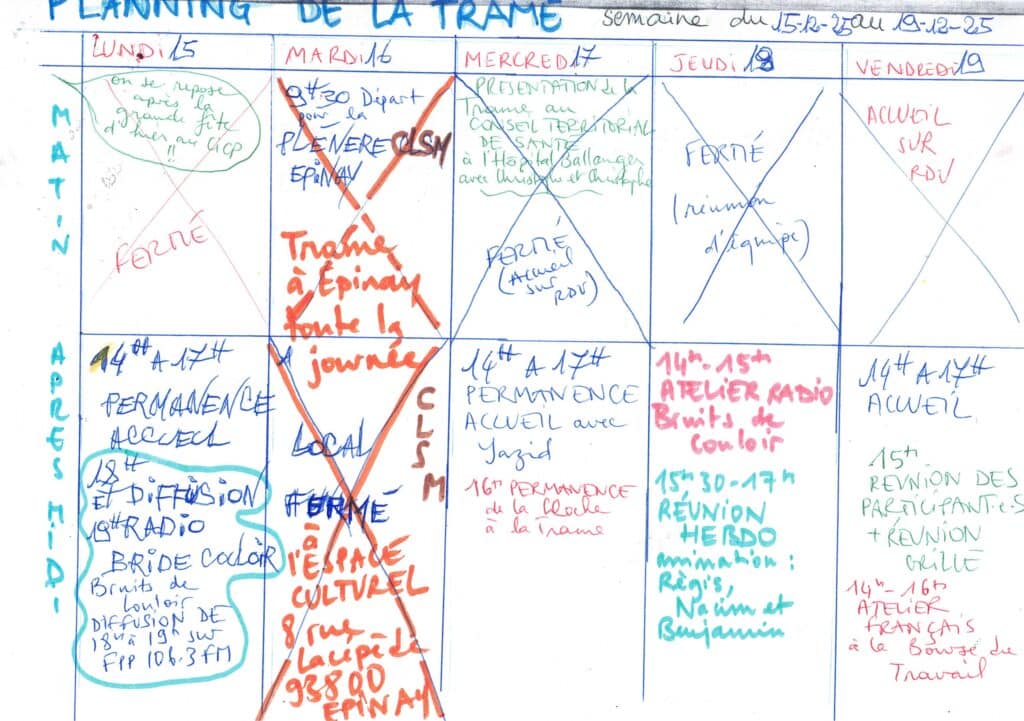 PLANNING DE LA TRAME semaine du 15-12-25 au 19-12-25
LUNDI 15
MARDI 16
MERCREDI 17
JEUDI 18
VENDREDI 19
MATIN
on se repose
après la
grande fête
d'hier au CICP
!!
FERMÉ
9H30 Départ
pour la
PLÉNIERE CLSM
EPINAY
Trame
à Épinay
toute la
journée
PRESENTATION de la
Trame au
CONSEIL TERRITORIAL
DE SANTE
à l'Hôpital Ballanger
avec Christophe et Christophe
FERMÉ
(Accueil
sur
RDV)
FERMÉ
(réunion
d'équipe)
ACCUEIL
SUR
RDV
APRES MIDI
14H A 17H
PERMANENCE
ACCUEIL
18H
ET DIFFUSION
19H RADIO
BRIDE COULOIR
Bruits de
Couloir
DIFFUSION DE
18h à 19h sur
FPP 106.3 FM
LOCAL
FERMÉ
CLSM
à
l'ESPACE
CULTUREL
8 rue
Lacépède
93800
EPINAY
14H A 17H
PERMANENCE
ACCUEIL avec
Yazid
16h PERMANENCE
de la Cloche
à la Trame
14h-15h
ATELIER RADIO
Bruits de
Couloir
15h30-17h
RÉUNION
HEBDO
animation :
Régis,
Nacim et
Benjamin
14H A 17H
ACCUEIL
15h
REUNION DES
PARTICIPANT·E·S
+ RÉUNION
GRILLE
14h-16h
ATELIER
FRANÇAIS
à la Bourse du
Travail